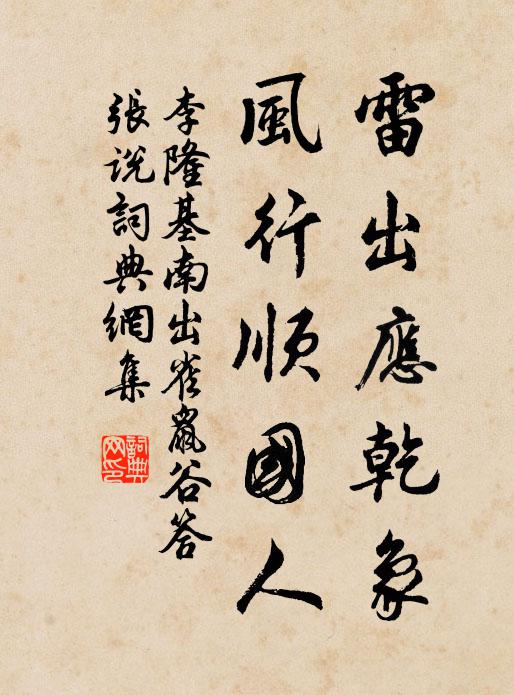 雷出應乾象
風行順國人
李隆基南出雀鼠谷答
張說詞典網集
詞典
网印